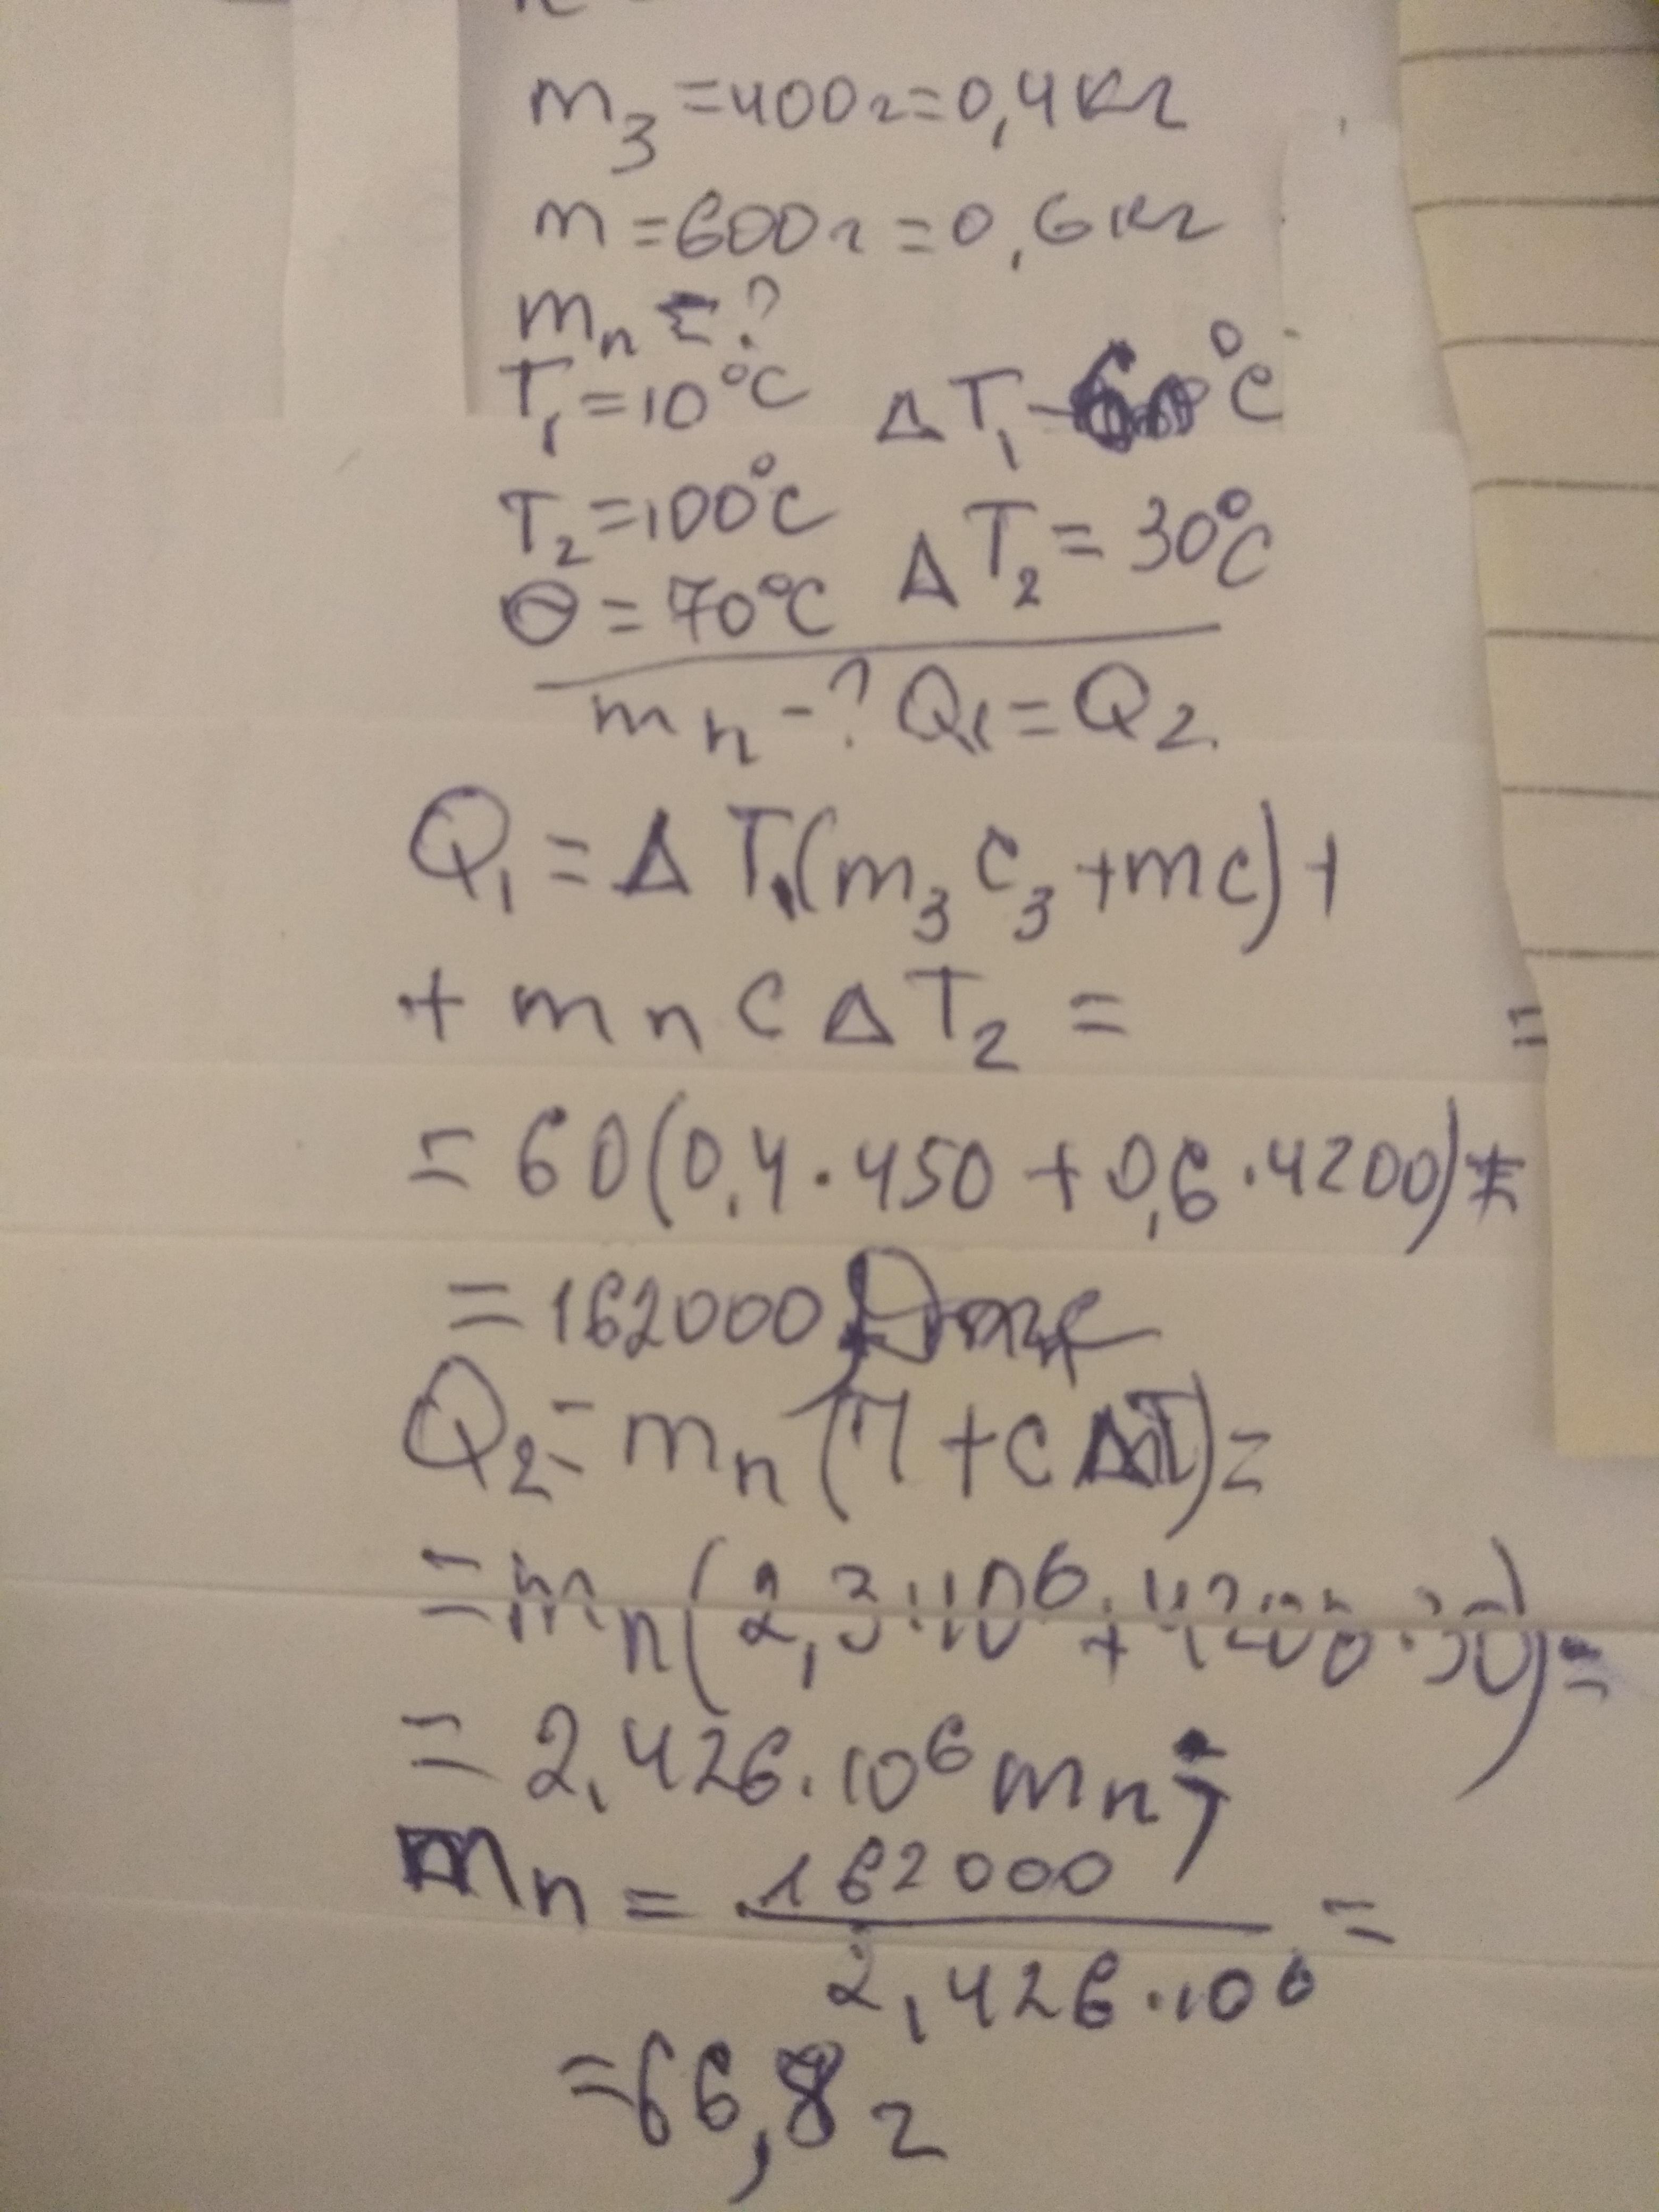 m₃ = 400г = 0,4 кг
m = 600г = 0,6 кг
mп = ?
T₁ = 10°C ΔT₁ – 60°C
T₂ = 100°C ΔT₂ = 30°C
Θ = 70°C
mп - ? Q₁ = Q₂
Q₁ = ΔT₁(m₃c₃ + mc) +
+ mп c ΔT₂ =
= 60(0,4·450 + 0,6·4200) =
= 162000 Дж
Q₂ = mп (П + cΔT) =
= mп (2,3·10⁶ + 4200·30) =
= 2,426·10⁶ mп;
mп = 162000 / 2,426·10⁶ =
= 66,8 г